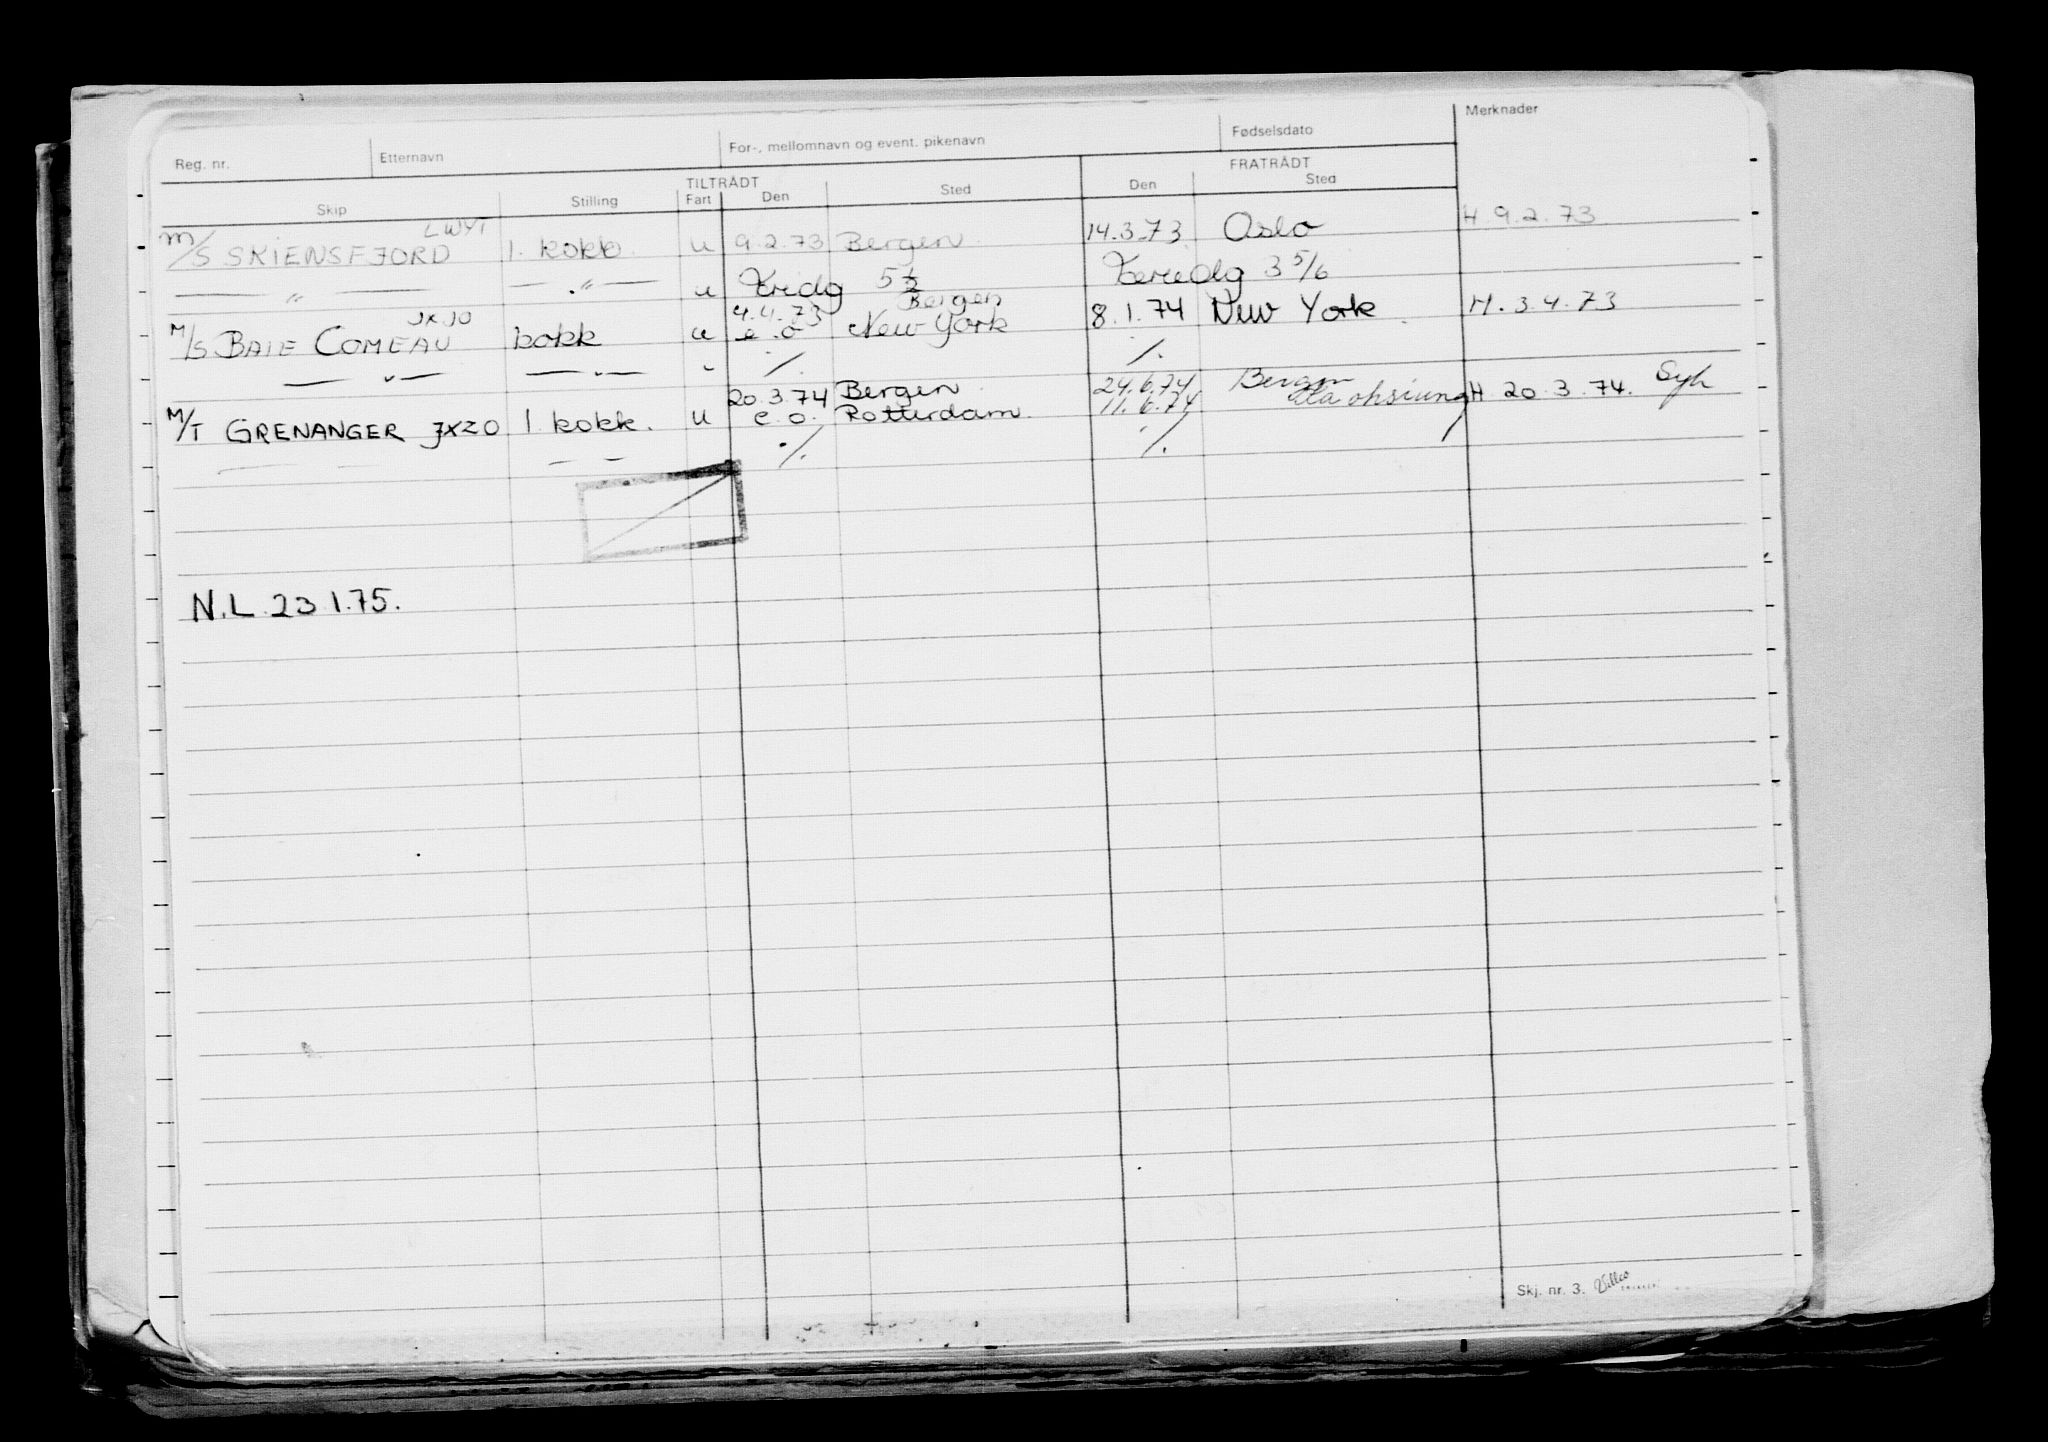 Reg. nr. Etternavn For-, mellomnavn og event. pikenavn Fødselsdato Merknader
TILTRÅDT FRATRÅDT
Skip Stilling Fart Den Sted Den Sted
LWYT
M/S SKIENSFJORD 1. kokk u 9.2.73 Bergen 14.3.73 Oslo H 9.2.73
— " — — " — u Feridg 5 ½ Feriedg 3 5/6
JXJO 4.4.73 Bergen
M/S BAIE COMEAU kokk u e.o New York 8.1.74 New York H.3.4.73
— " — — " — " ./. ./.
20.3.74 Bergen 24.6.74 Bergen
M/T GRENANGER JXZO 1 kokk. u e.o. Rotterdam 11.6.74 H 20.3.74. Syk
— — — — ./. ./.
N.L. 23 1.75.
Skj. nr. 3.